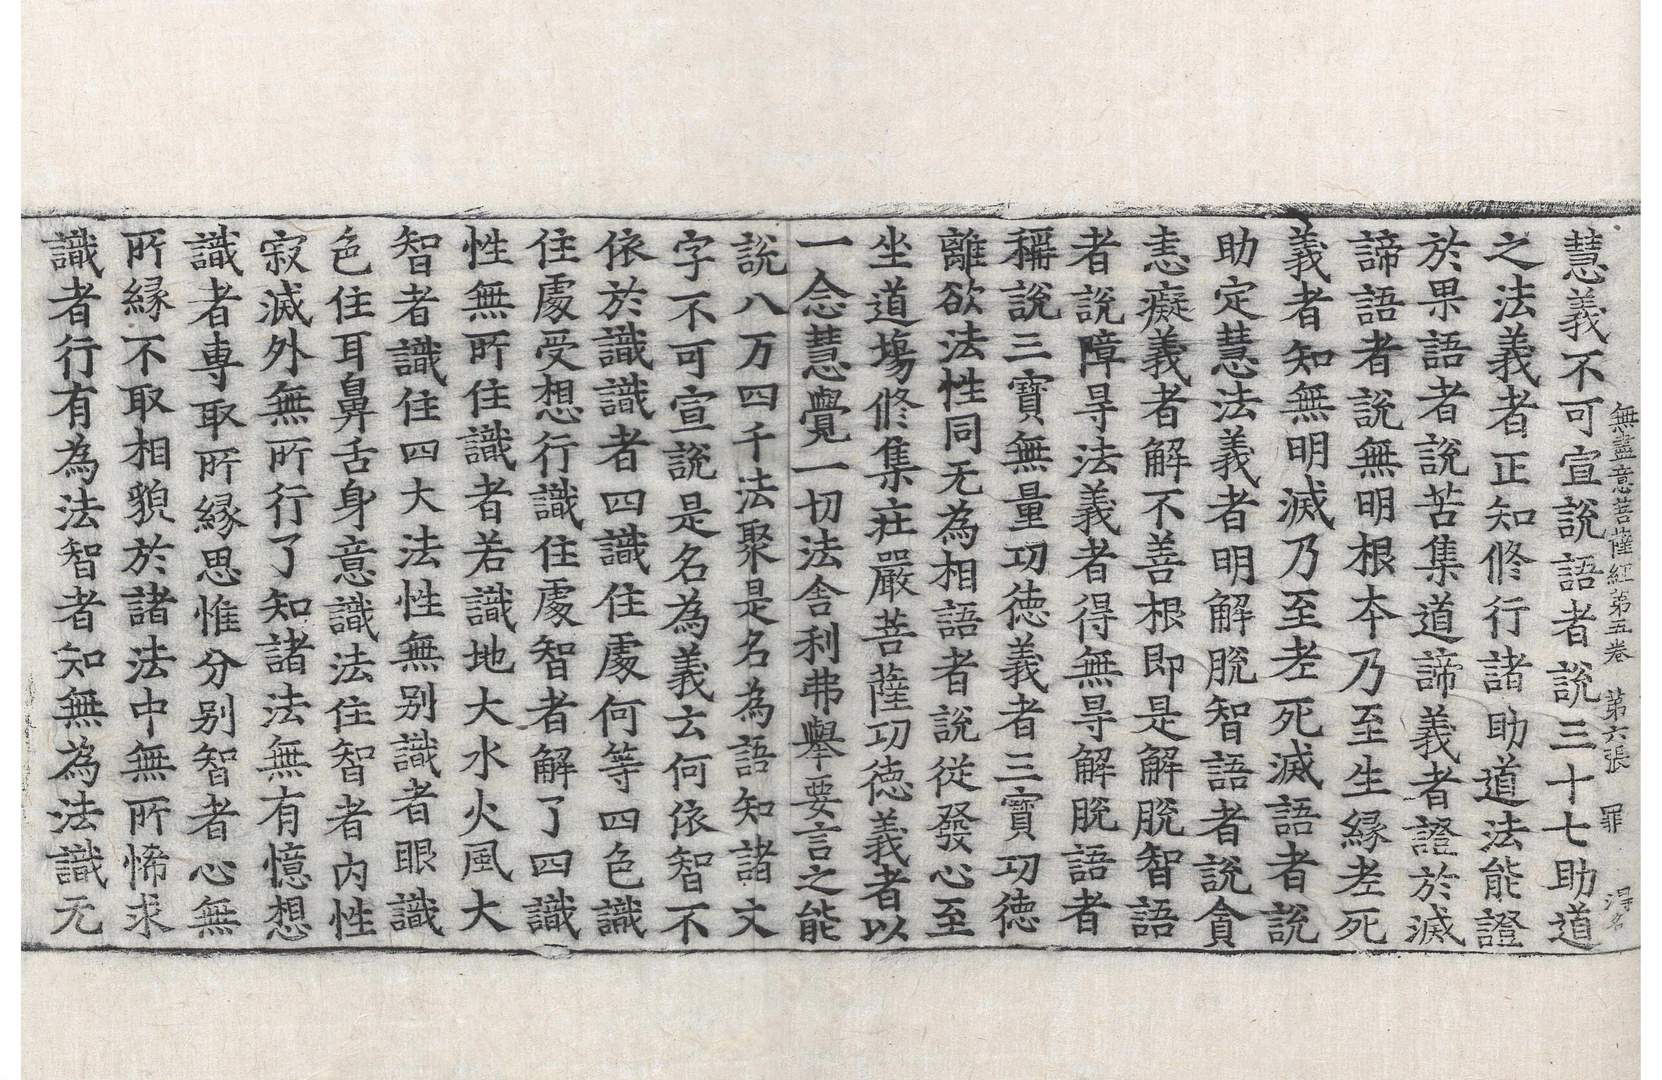 無盡意菩薩經第五卷　第六張　罪　淂名
慧義不可宣說語者說三十七助道
之法義者正知修行諸助道法能證
於果語者說苦集道諦義者證於滅
諦語者說無明根本乃至生緣老死
義者知無明滅乃至老死滅語者說
助定慧法義者明解脫智語者說貪
恚癡義者解不善根即是解脫智語
者說障㝵法義者得無㝵解脫語者
稱說三寶無量功德義者三寶功德
離欲法性同无為相語者說從發心至
坐道場修集莊嚴菩薩功德義者以
一念慧覺一切法舍利弗舉要言之能
說八万四千法聚是名為語知諸文
字不可宣說是名為義云何依智不
依於識識者四識住處何等四色識
住處受想行識住處智者解了四識
性無所住識者若識地大水火風大
智者識住四大法性無別識者眼識
色住耳鼻舌身意識法住智者內性
寂滅外無所行了知諸法無有憶想
識者專取所緣思惟分別智者心無
所緣不取相貌於諸法中無所悕求
識者行有為法智者知無為法識无